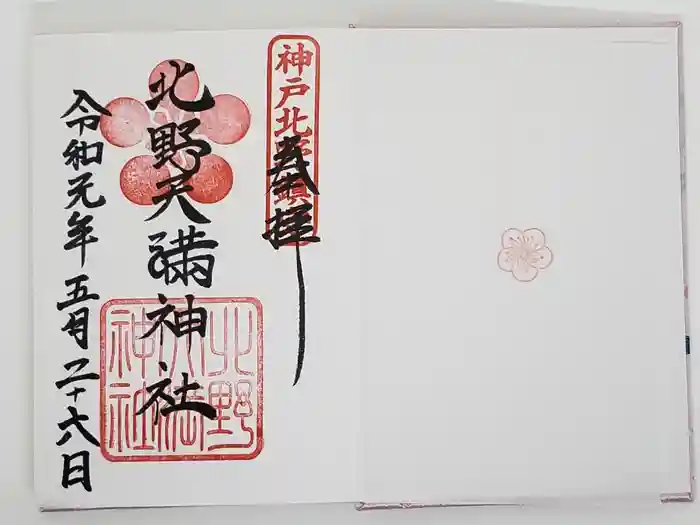 奉拝
神戸北野鎮
北野天満神社
北野天満神社
令和元年五月二十六日